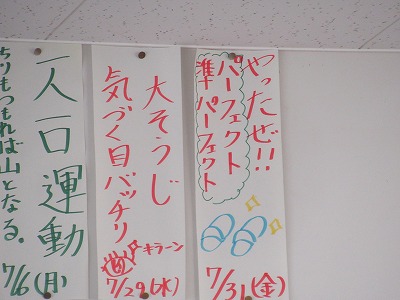 やったぜ!!
パーフェクト
準パーフェクト
7/31(金)
大そうじ
気づく目バッチリ
キラーン
7/29(水)
一人一口運動
ちりもつもれば山となる。
7/16(月)